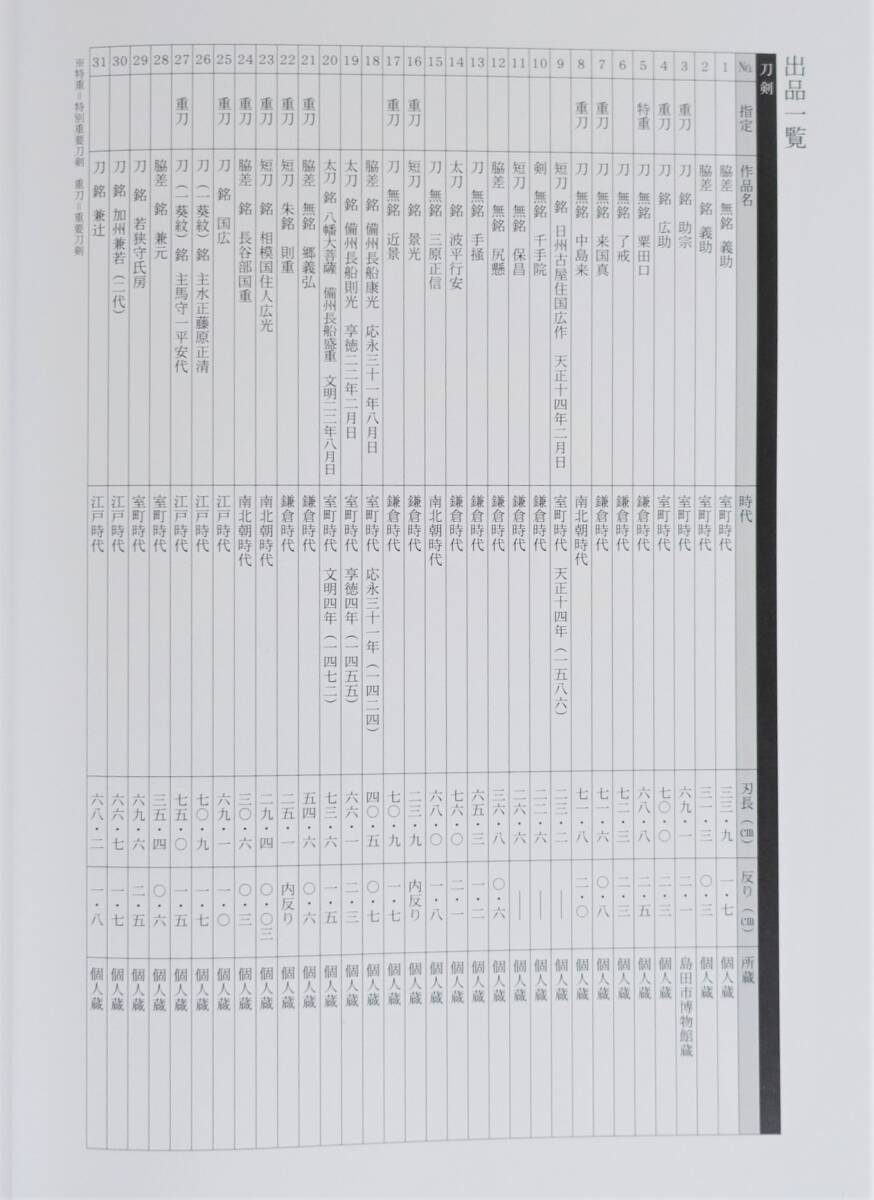 出品一覧
刀剣
No. 指定 作品名 時代 刃長(cm) 反り(cm) 所蔵
1 脇差 無銘 義助 室町時代 三三・九 一・七 個人蔵
2 脇差 銘 義助 室町時代 三一・三 〇・三 個人蔵
3 重刀 刀 銘 助宗 室町時代 六九・一 二・一 島田市博物館蔵
4 重刀 刀 銘 広助 室町時代 七〇・〇 二・三 個人蔵
5 特重 刀 無銘 粟田口 鎌倉時代 六八・八 二・五 個人蔵
6 刀 無銘 了戒 鎌倉時代 七二・三 二・三 個人蔵
7 重刀 刀 無銘 来国真 鎌倉時代 七一・六 〇・八 個人蔵
8 重刀 刀 無銘 中島来 南北朝時代 七一・八 二・〇 個人蔵
9 短刀 銘 日州古屋住国広作 天正十四年二月日 室町時代 天正十四年(一五八六) 二三・二 ― 個人蔵
10 剣 無銘 千手院 鎌倉時代 二二・六 ― 個人蔵
11 短刀 無銘 保昌 鎌倉時代 二六・六 ― 個人蔵
12 脇差 無銘 尻懸 鎌倉時代 三六・八 〇・六 個人蔵
13 刀 無銘 手掻 鎌倉時代 六五・三 一・二 個人蔵
14 太刀 銘 波平行安 鎌倉時代 七六・〇 二・一 個人蔵
15 刀 無銘 三原正信 南北朝時代 六八・〇 一・八 個人蔵
16 重刀 短刀 銘 景光 鎌倉時代 二三・九 内反り 個人蔵
17 重刀 刀 無銘 近景 鎌倉時代 七〇・九 一・七 個人蔵
18 脇差 銘 備州長船康光 応永三十一年八月日 室町時代 応永三十一年(一四二四) 四〇・五 〇・七 個人蔵
19 太刀 銘 備州長船則光 享徳二二年二月日 室町時代 享徳四年(一四五五) 六六・一 二・三 個人蔵
20 太刀 銘 八幡大菩薩 備州長船盛重 文明二二年八月日 室町時代 文明四年(一四七二) 七三・六 一・五 個人蔵
21 重刀 脇差 無銘 郷義弘 鎌倉時代 五四・六 〇・六 個人蔵
22 重刀 短刀 朱銘 則重 鎌倉時代 二五・一 内反り 個人蔵
23 重刀 短刀 銘 相模国住人広光 南北朝時代 二九・四 〇・〇三 個人蔵
24 重刀 脇差 銘 長谷部国重 南北朝時代 三〇・六 〇・三 個人蔵
25 重刀 刀 銘 国広 江戸時代 六九・一 一・〇 個人蔵
26 刀 (一葵紋)銘 主水正藤原正清 江戸時代 七〇・九 一・七 個人蔵
27 重刀 刀 (一葵紋)銘 主馬守一平安代 江戸時代 七五・〇 一・五 個人蔵
28 脇差 銘 兼元 室町時代 三五・四 〇・六 個人蔵
29 刀 銘 若狭守氏房 室町時代 六九・六 二・五 個人蔵
30 刀 銘 加州兼若(二代) 江戸時代 六六・七 一・七 個人蔵
31 刀 銘 兼辻 江戸時代 六八・二 一・八 個人蔵
※特重=特別重要刀剣 重刀=重要刀剣